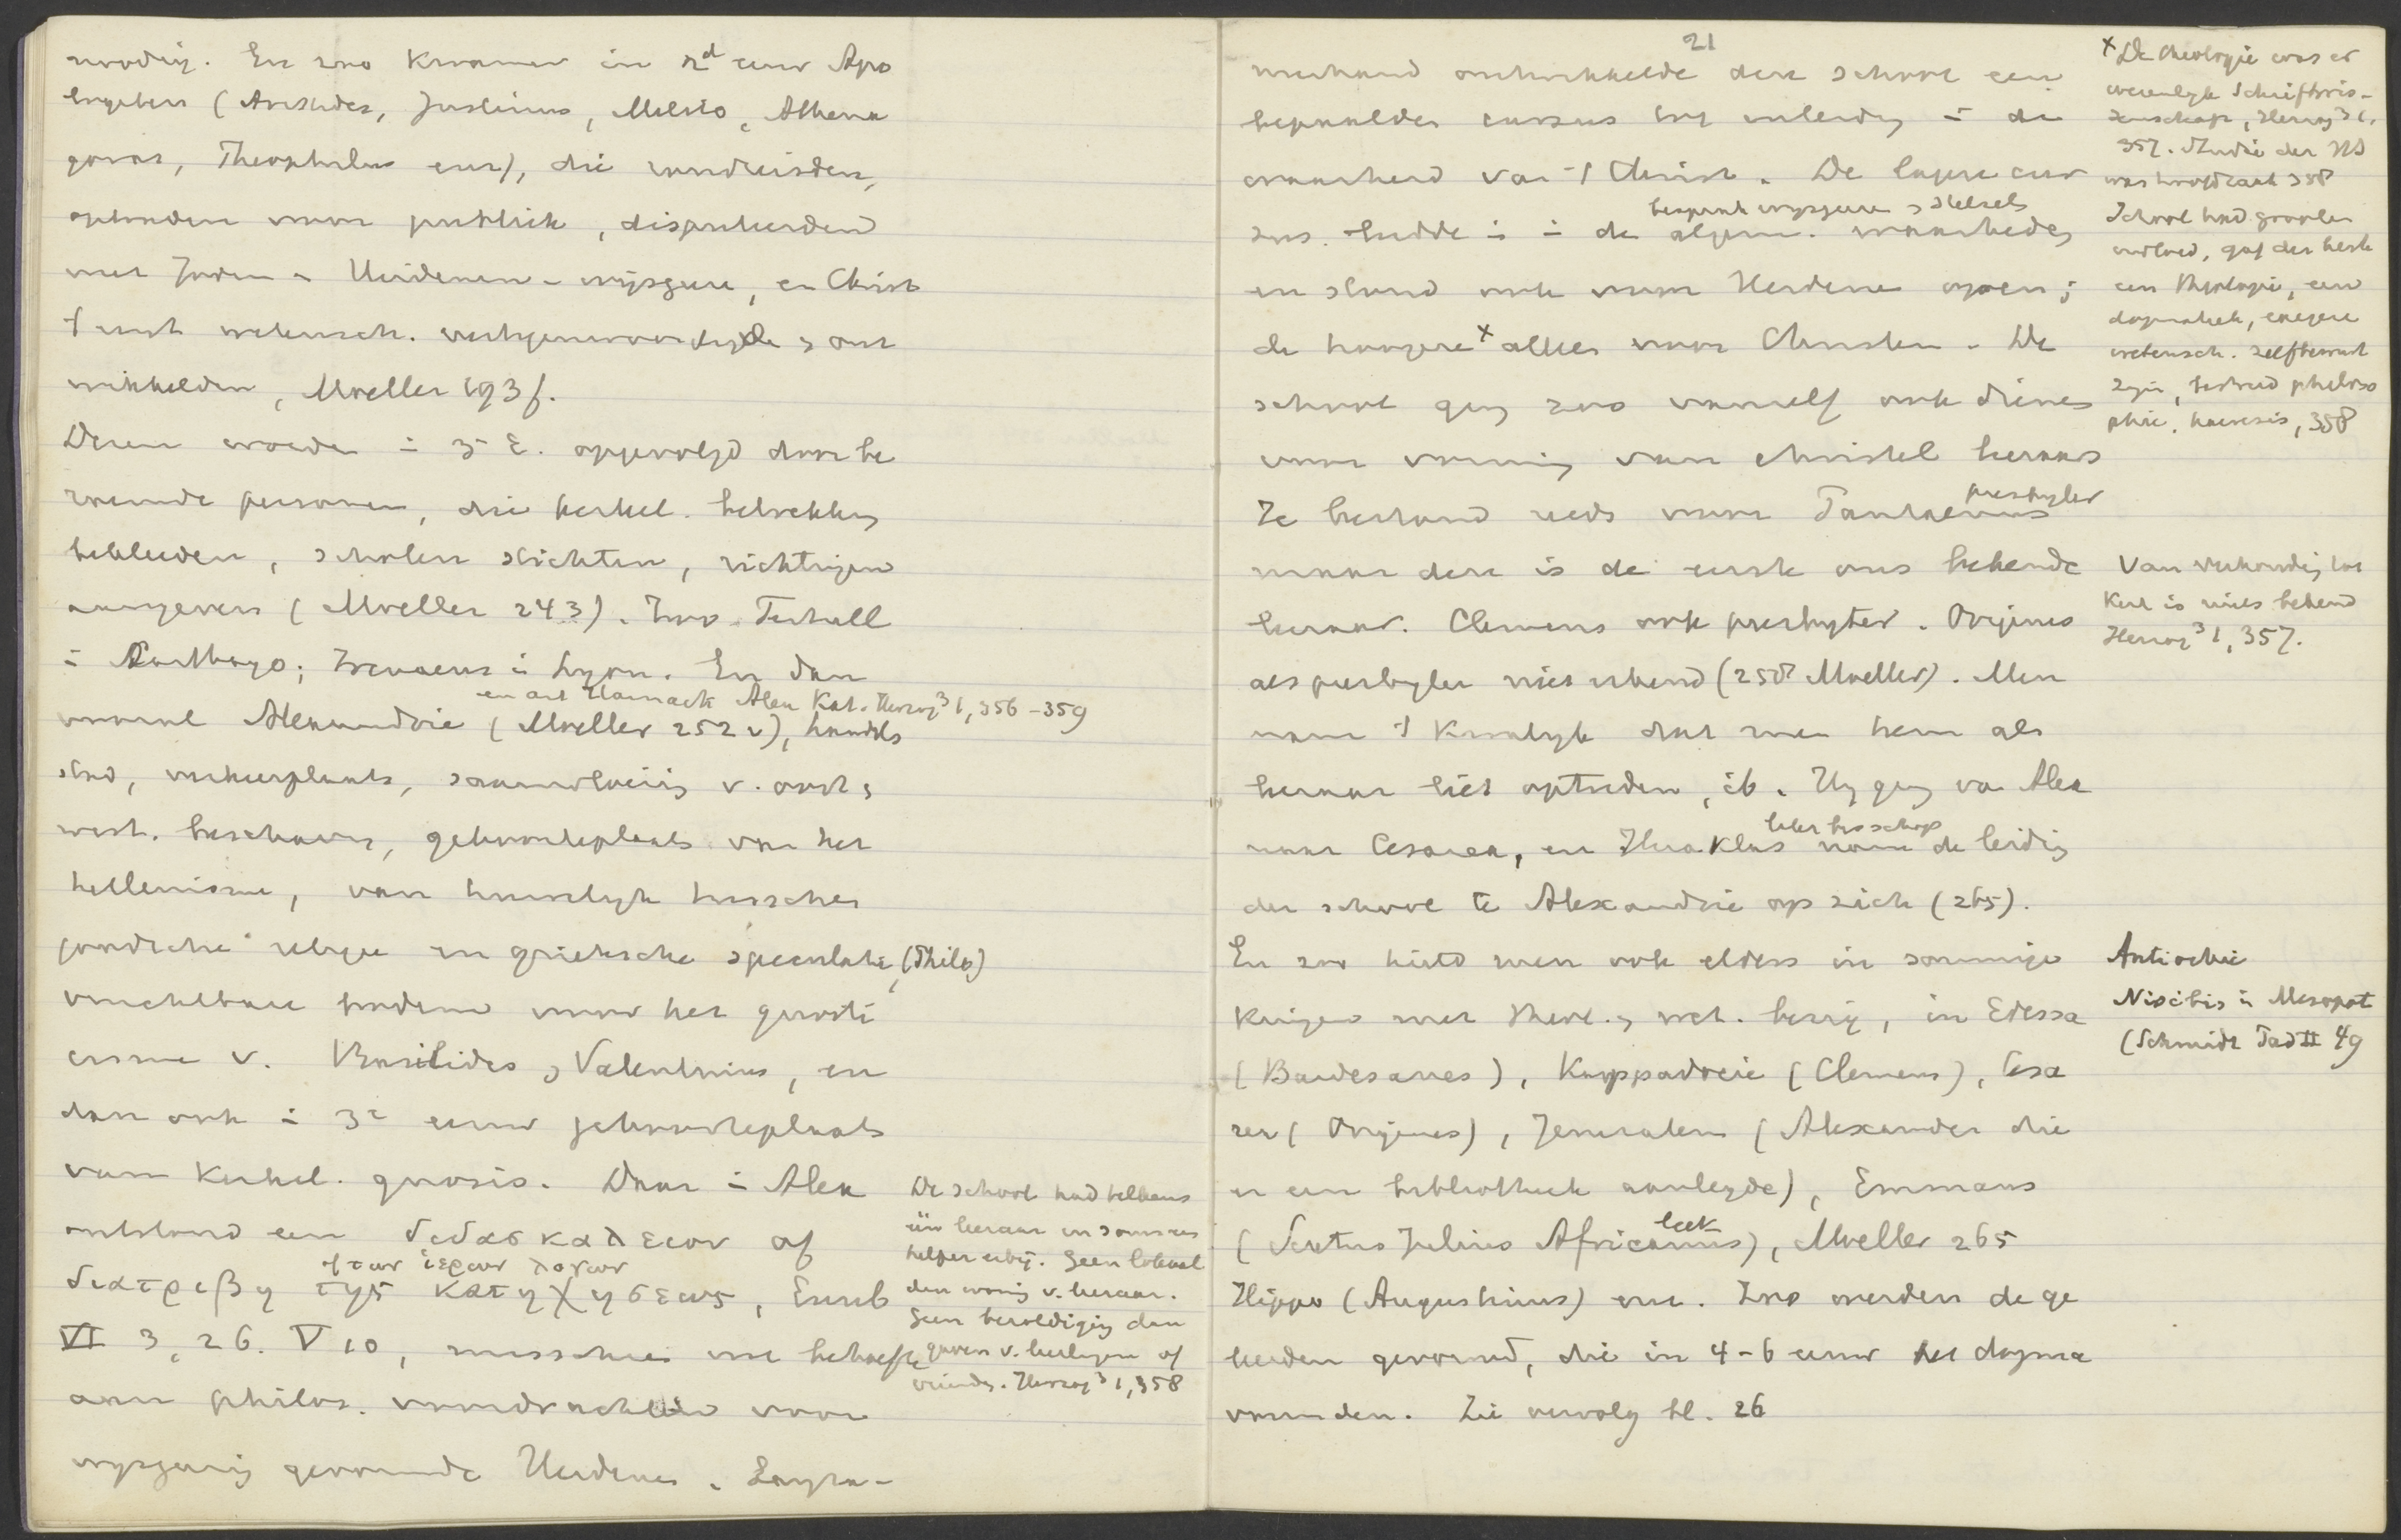 noodig. En zoo kwamen in 2d eeuw Apo
logeten (Aristides, Justinus, Melito, Athena
goras, Theophilus enz), die rondreisden,
optraden voor publiek, disputeerden
met Joden - Heidenen - wijsgeeren, en Christ
wetensch. vertegenwoordigde, ont
wikkelden, Moeller 193f.
Dezen worden in 3e E. opgevolgd door be
roemde personen, die kerkel. betrekking
bekleeden, scholen stichten, richtingen
aangeven (Moeller 243). Zoo Tertull
in Carthago; Irenaeus in Lyon. En dan
en art Harnack Alex Kat. Herzog³ 1, 356-359
vooral Alexandrie (Moeller 252v), handels
stad, verkeerplaats, samenvloeiing v. oost,
west. beschaving, geboorteplaats van het
hellenisme, van huwelijk tusschen
joodsche religie en grieksche speculatie, (Philo)
vruchtbare bodem voor het gnosti
cisme v. Basilides, Valentinus, en
dan ook in 3e eeuw geboorteplaats
van kerkel. gnosis. Daar in Alex
ontstond een διδασκαλειον of
των ιερων λογων
διατριβη της κατηχησεως, Euseb
VI 3, 26. V 10, misschien uit behoefte
aan philos. voordrachten voor
wijsgeerig gevormde Heidenen. Lang­za-
De school had telkens
één leeraar en soms een
helper erbij. Geen lokaal
dan woning v. leeraar.
Geen bezoldiging dan
gaven v. leerlingen of
vrienden. Herzog³ 1, 358
21
merhand ontwikkelde deze school een
bepaalden cursus tot inleiding in de
waarheid van 't Christ. De lagere cur
besprak wijsgeeren, stelsels
sus leidde in in de algem. waarheden
en stond ook voor Heidenen open;
de hoogere x alleen voor Christen. De
school ging zoo vanzelf ook dienen
voor vorming van christel leeraars
presbyter
Ze bestond reeds voor Pantaenus
maar deze is de eerste ons bekende
leeraar. Clemens ook presbyter. Origenes
als presbyter niet erkend (258 Moeller). Men
nam 't kwalijk dat men hem als
leeraar liet optreden, ib. Hij ging van Alex
later bisschop
naar Cesarea, en Heraklas nam de leiding
der school te Alexandrie op zich (265).
En zoo hield men ook elders in sommige
kringen met theol., wet. bezig, in Edessa
(Bardesanes), Kappadocie (Clemens), Cesa
rea (Origenes), Jeruzalem (Alexander die
er een bibliotheek aanlegde), Emmaus
leek
(Sextus Julius Africanus), Moeller 265
Hippo (Augustinus) enz. Zoo werden de ge
leerden gevormd, die in 4-6 eeuw het dogma
vormden. Zie vervolg bl. 26
x De theologie was er
wezenlijk Schriftwe-
tenschap, Herzog³ 1,
357. Studie der HS
was hoofdzaak 358
School had grooten
invloed, gaf der kerk
een theologie, een
dogmatiek, exegese
wetensch. zelfbewust
zijn, bestreed philoso
phie, haeresis, 358
Van verhouding tot
Kerk is niets bekend
Herzog³ 1, 357.
Antiochie
Nisibis in Mesopot
(Schmidt Pad II 49